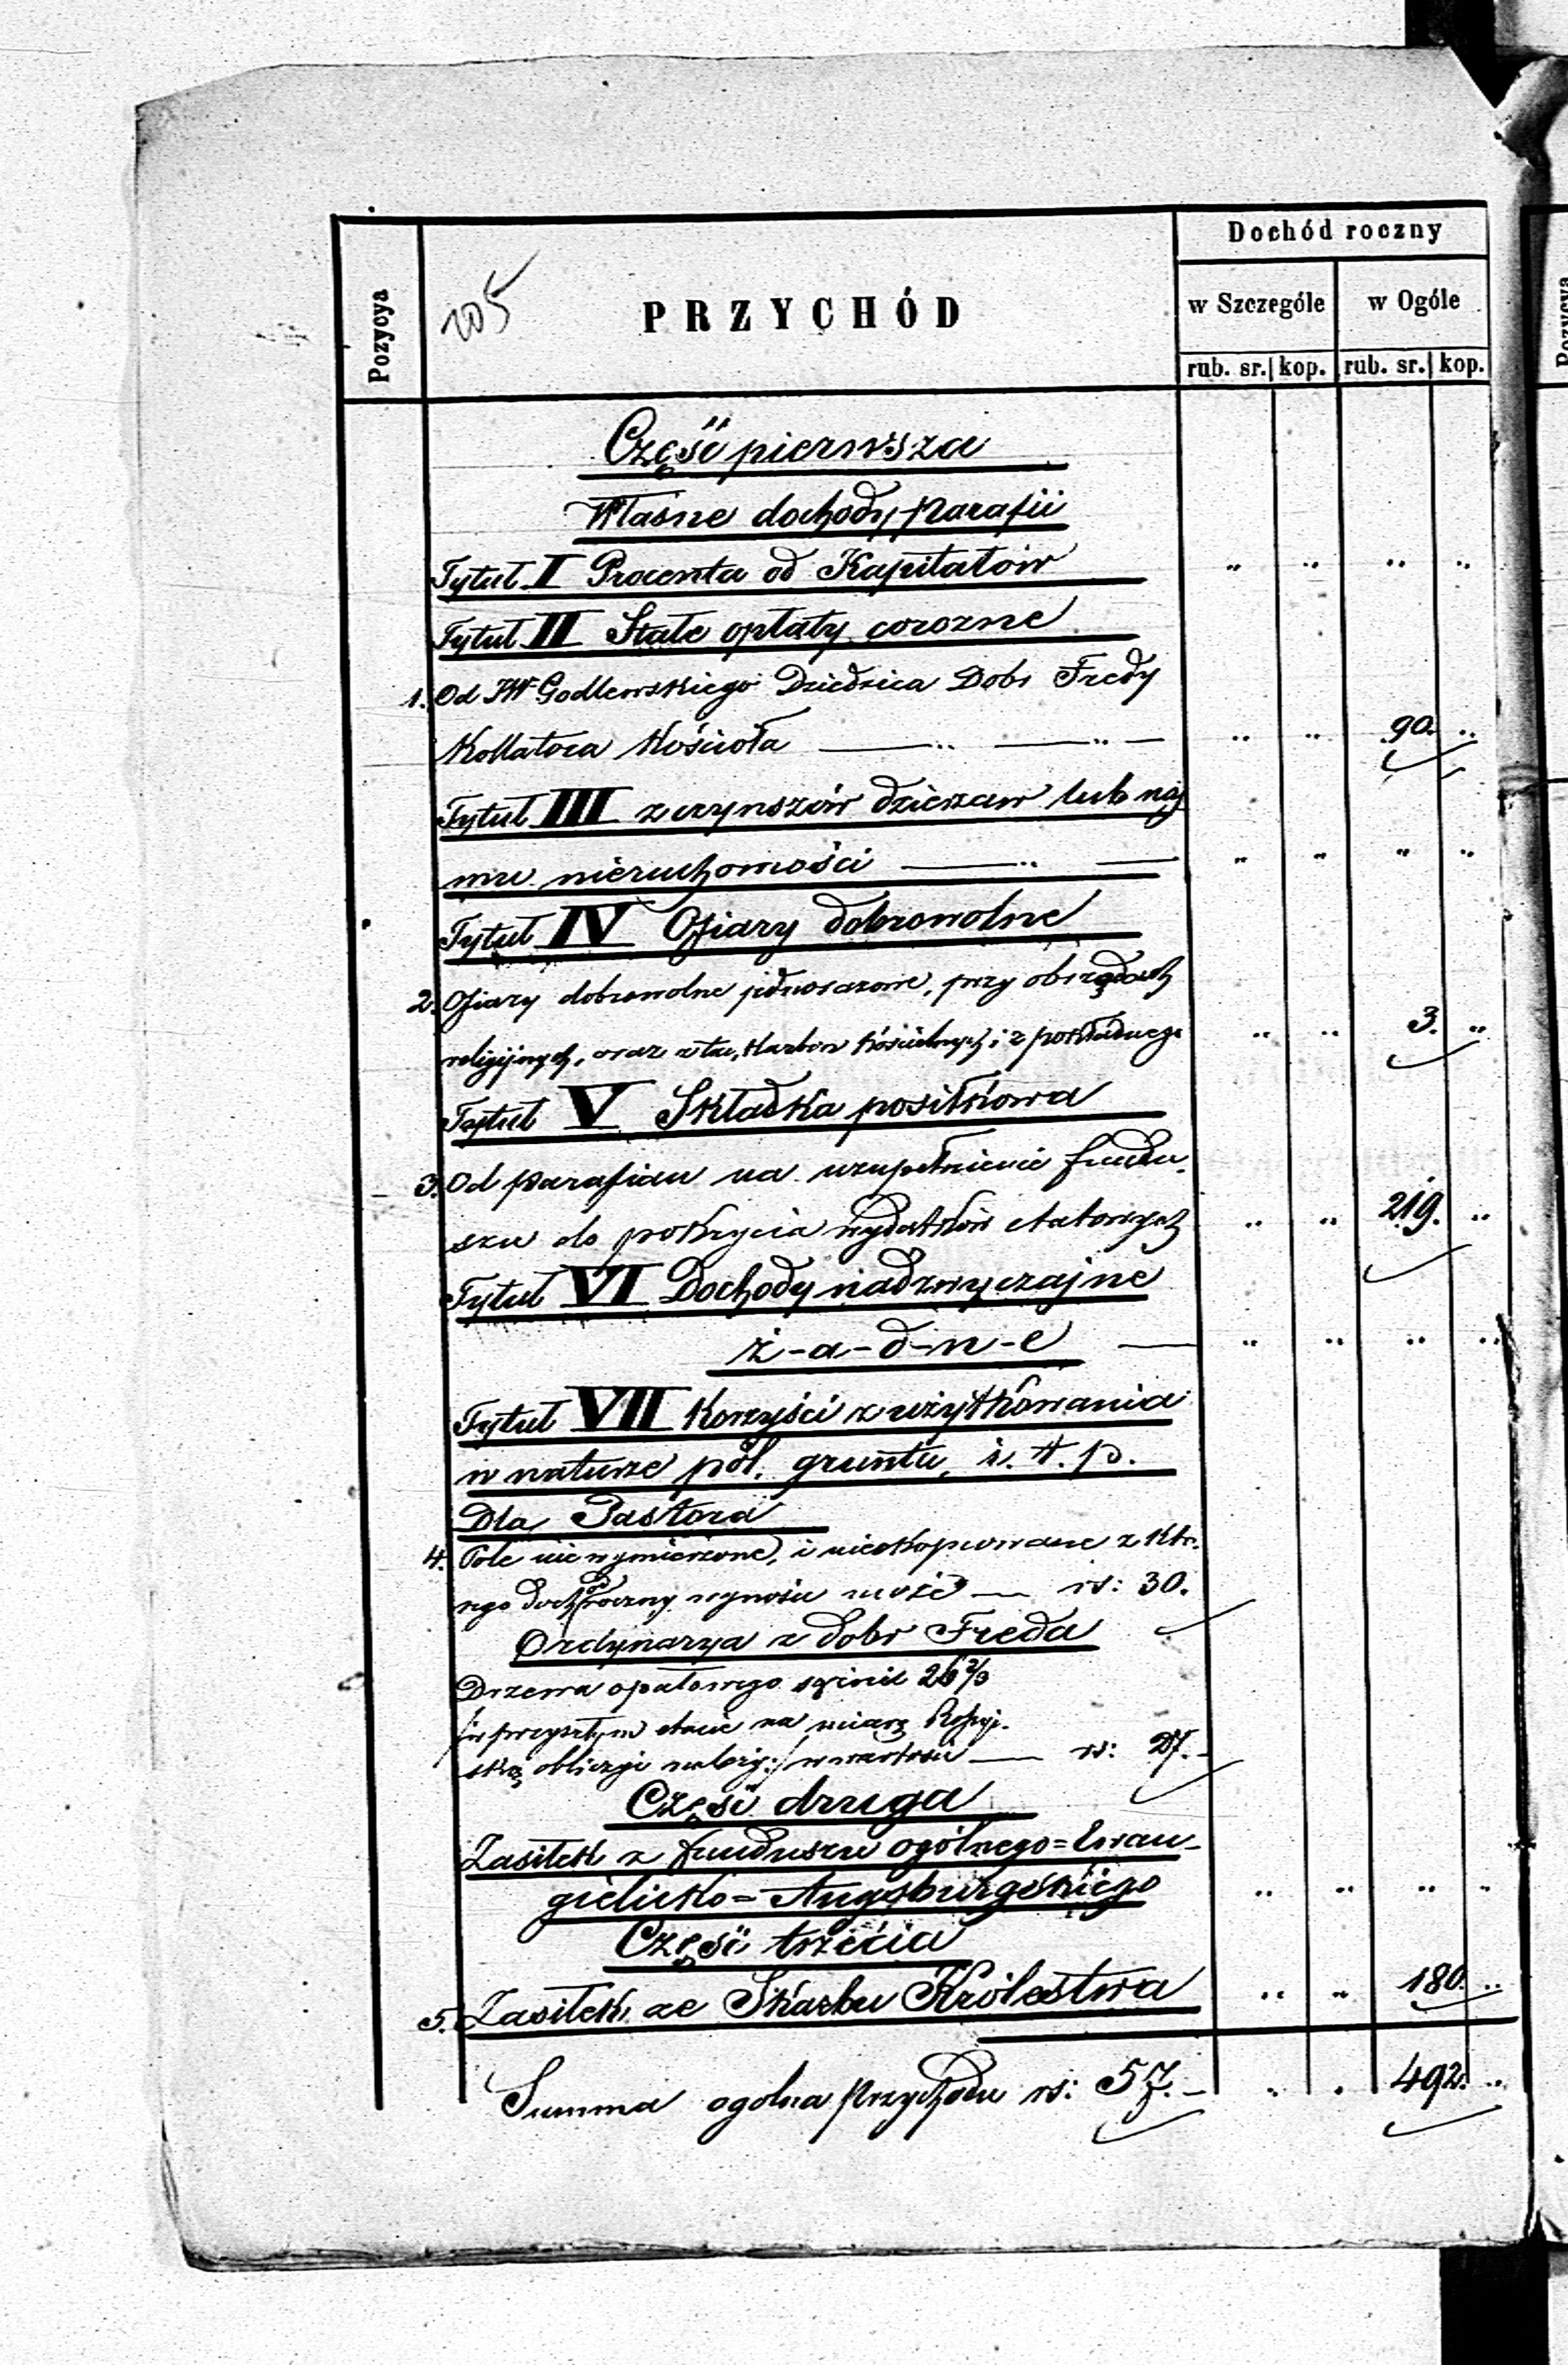 Dochód roczny
Pozycya
205
PRZYCHÓD
w Szczególe
w Ogóle
rub. sr. kop. rub. sr. kop.
Część pierwsza
Własne dochody parafii
Tytuł I Procenta od Kapitałów " " " "
Tytuł II Stałe opłaty coroczne
1. Od JW Godlewskiego Dziedzica Dobr Fredy
Kollatora Kościoła — " — " — " " 90. "
Tytuł III z czynszów dzierzaw lub naj
mu nieruchomości — " — " " " "
Tytuł IV Ofiary dobrowolne
2. Ofiary dobrowolne jednorazowe, przy obrzędach
religijnych, oraz z tac, skarbon Kościelnych i z pokładnego " " 3. "
Tytuł V Składka posiłkowa
3. Od parafian na uzupełnienie fundu-
szu do pokrycia wydatków etatowych " " 219. "
Tytuł VI Dochody nadzwyczajne
ż-a-d-n-e — " " " "
Tytuł VII Korzyści z użytkowania
w naturze pól, gruntu, i. t. p.
Dla Pastora
4. Pole nie wymierzone, i nieokopcowane z któ-
rego doch roczny wynosić może — rs: 30.
Ordynarya z dobr Freda
Drzewa opałowego sążni 26 2/3
/:w przyszłym etacie na miarę
obliczyć należy:/ wwartości — rs: 27.-
Część druga
Zasiłek z funduszu ogólnego=Ewan-
gielicko=Augsburgskiego " " " "
Część trzecia
5. Zasiłek ze Skarbu Królestwa " " 180. "
Summa ogolna Przychodu rs: 57.- " " 492. "
Pozycya